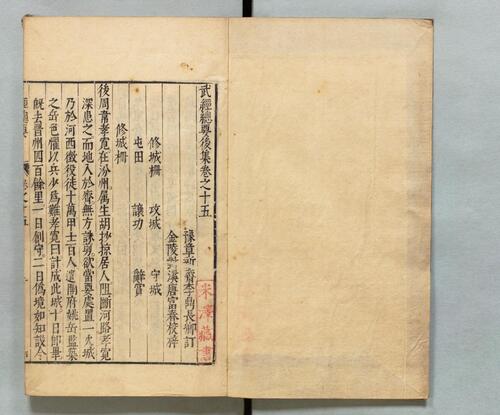 武經總要後集卷之十五
豫章 齋李鼎長卿訂
金陵 溪唐富春校梓
修城柵 攻城 守城
屯田 讓功 辭賞
修城柵
後周韋孝寬在汾州屬生胡抄掠居人阻斷河路孝寬
深患之而地入於齊無方誅剪欲當要處置一大城
乃於河西徵役徒十萬甲士百人遣開府姚岳監築
之岳色懼以兵少爲難孝寬曰計成此城十日即畢
既去晉州四百餘里一日創守二日偽境如知設令
卷之十五
米澤藏書